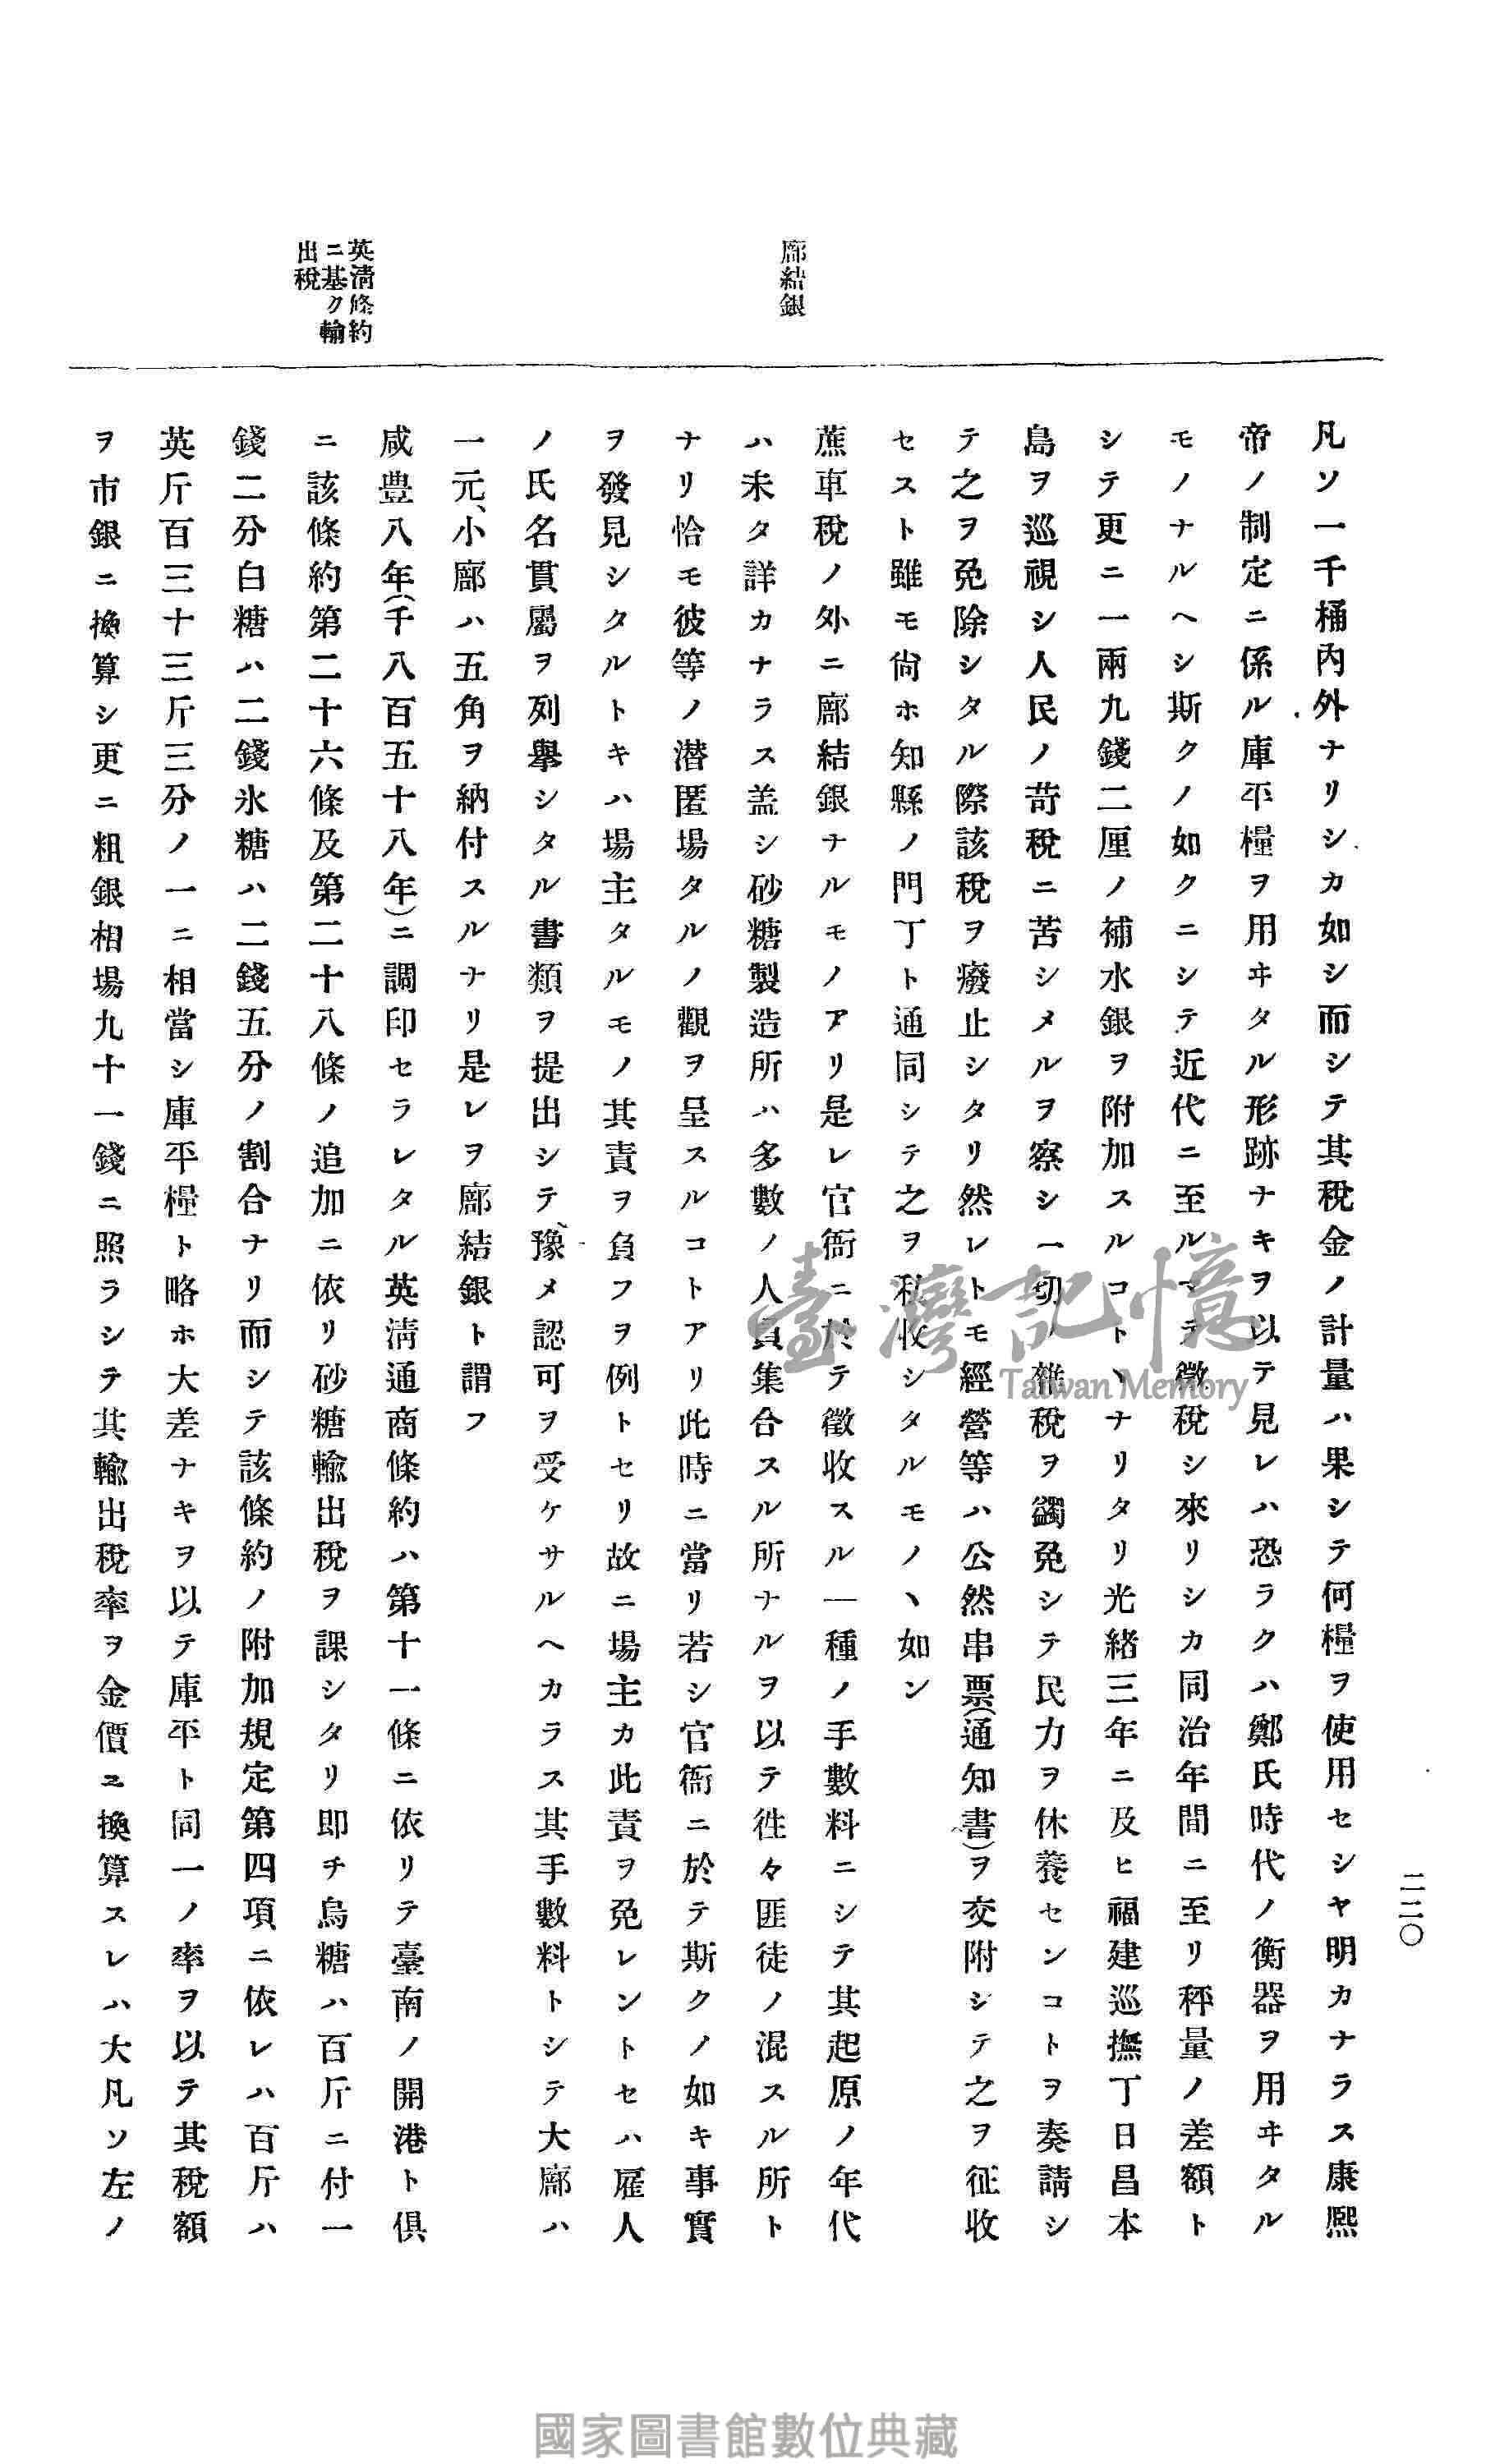 二二〇
廍結銀
英淸條約
ニ基ク輸
出稅
凡ソ一千桶內外ナリシカ如シ而シテ其稅金ノ計量ハ果シテ何糧ヲ使用セシヤ明カナラス康熙
帝ノ制定ニ係ル庫平糧ヲ用ヰタル形跡ナキヲ以テ見レハ恐ラクハ鄭氏時代ノ衡器ヲ用ヰタル
モノナルヘシ斯クノ如クニシテ近代ニ至ルマテ徵稅シ來リシカ同治年間ニ至リ秤量ノ差額ト
シテ更ニ一兩九錢二厘ノ補水銀ヲ附加スルコトヽナリタリ光緒三年ニ及ヒ福建巡撫丁日昌本
島ヲ巡視シ人民ノ苛稅ニ苦シメルヲ察シ一切ノ雜稅ヲ蠲免シテ民力ヲ休養センコトヲ奏請シ
テ之ヲ免除シタル際該稅ヲ癈止シタリ然レトモ經營等ハ公然串票(通知書)ヲ交附シテ之ヲ征收
セスト雖モ尙ホ知縣ノ門丁ト通同シテ之ヲ私收シタルモノヽ如ン
蔗車稅ノ外ニ廍結銀ナルモノアリ是レ官衙ニ於テ徵收スル一種ノ手數料ニシテ其起原ノ年代
ハ未タ詳カナラス盖シ砂糖製造所ハ多數ノ人員集合スル所ナルヲ以テ徃々匪徒ノ混スル所ト
ナリ恰モ彼等ノ潜匿場タルノ觀ヲ呈スルコトアリ此時ニ當リ若シ官衙ニ於テ斯クノ如キ事實
ヲ發見シタルトキハ場主タルモノ其責ヲ負フヲ例トセリ故ニ場主カ此責ヲ免レントセハ雇人
ノ氏名貫屬ヲ列擧シタル書類ヲ提出シテ豫メ認可ヲ受ケサルヘカラス其手數料トシテ大廍ハ
一元、小廍ハ五角ヲ納付スルナリ是レヲ廍結銀ト謂フ
咸豊八年(千八百五十八年)ニ調印セラレタル英淸通商條約ハ第十一條ニ依リテ臺南ノ開港ト俱
ニ該條約第二十六條及第二十八條ノ追加ニ依リ砂糖輸出稅ヲ課シタリ即チ烏糖ハ百斤ニ付一
錢二分白糖ハ二錢氷糖ハ二錢五分ノ割合ナリ而シテ該條約ノ附加規定第四項ニ依レハ百斤ハ
英斤百三十三斤三分ノ一ニ相當シ庫平糧ト略ホ大差ナキヲ以テ庫平ト同一ノ率ヲ以テ其稅額
ヲ市銀ニ換算シ更ニ粗銀相場九十一錢ニ照ラシテ其輸出稅率ヲ金價ニ換算スレハ大凡ソ左ノ
臺灣記憶
Taiwan Memory
國家圖書館數位典藏